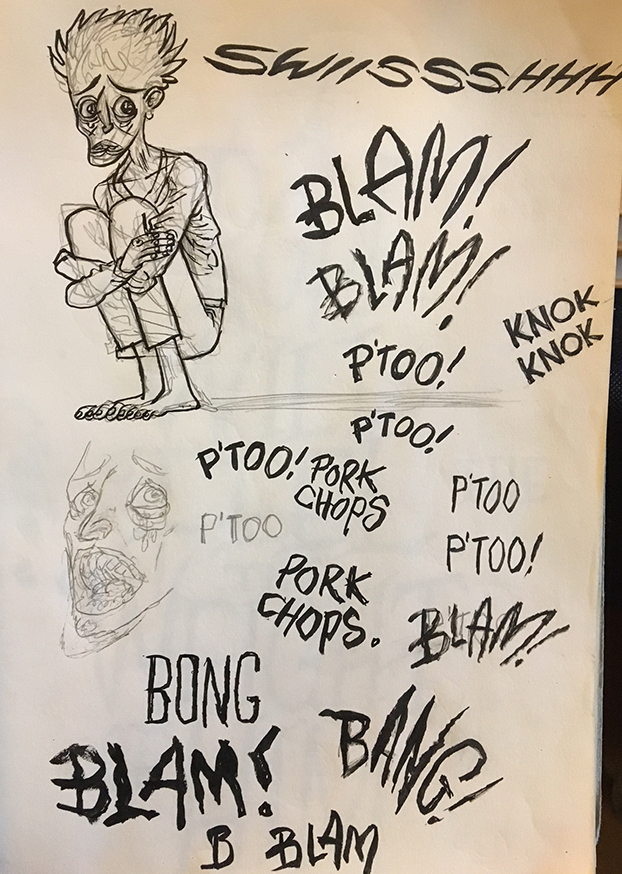 SWIISSSSHHH
BLAM!
BLAM!
KNOK
KNOK
P'TOO!
P'TOO!
P'TOO!
PORK
CHOPS
P'TOO
P'TOO
P'TOO!
PORK
CHOPS.
BLAM!
BONG
BANG!
BLAM!
B BLAM